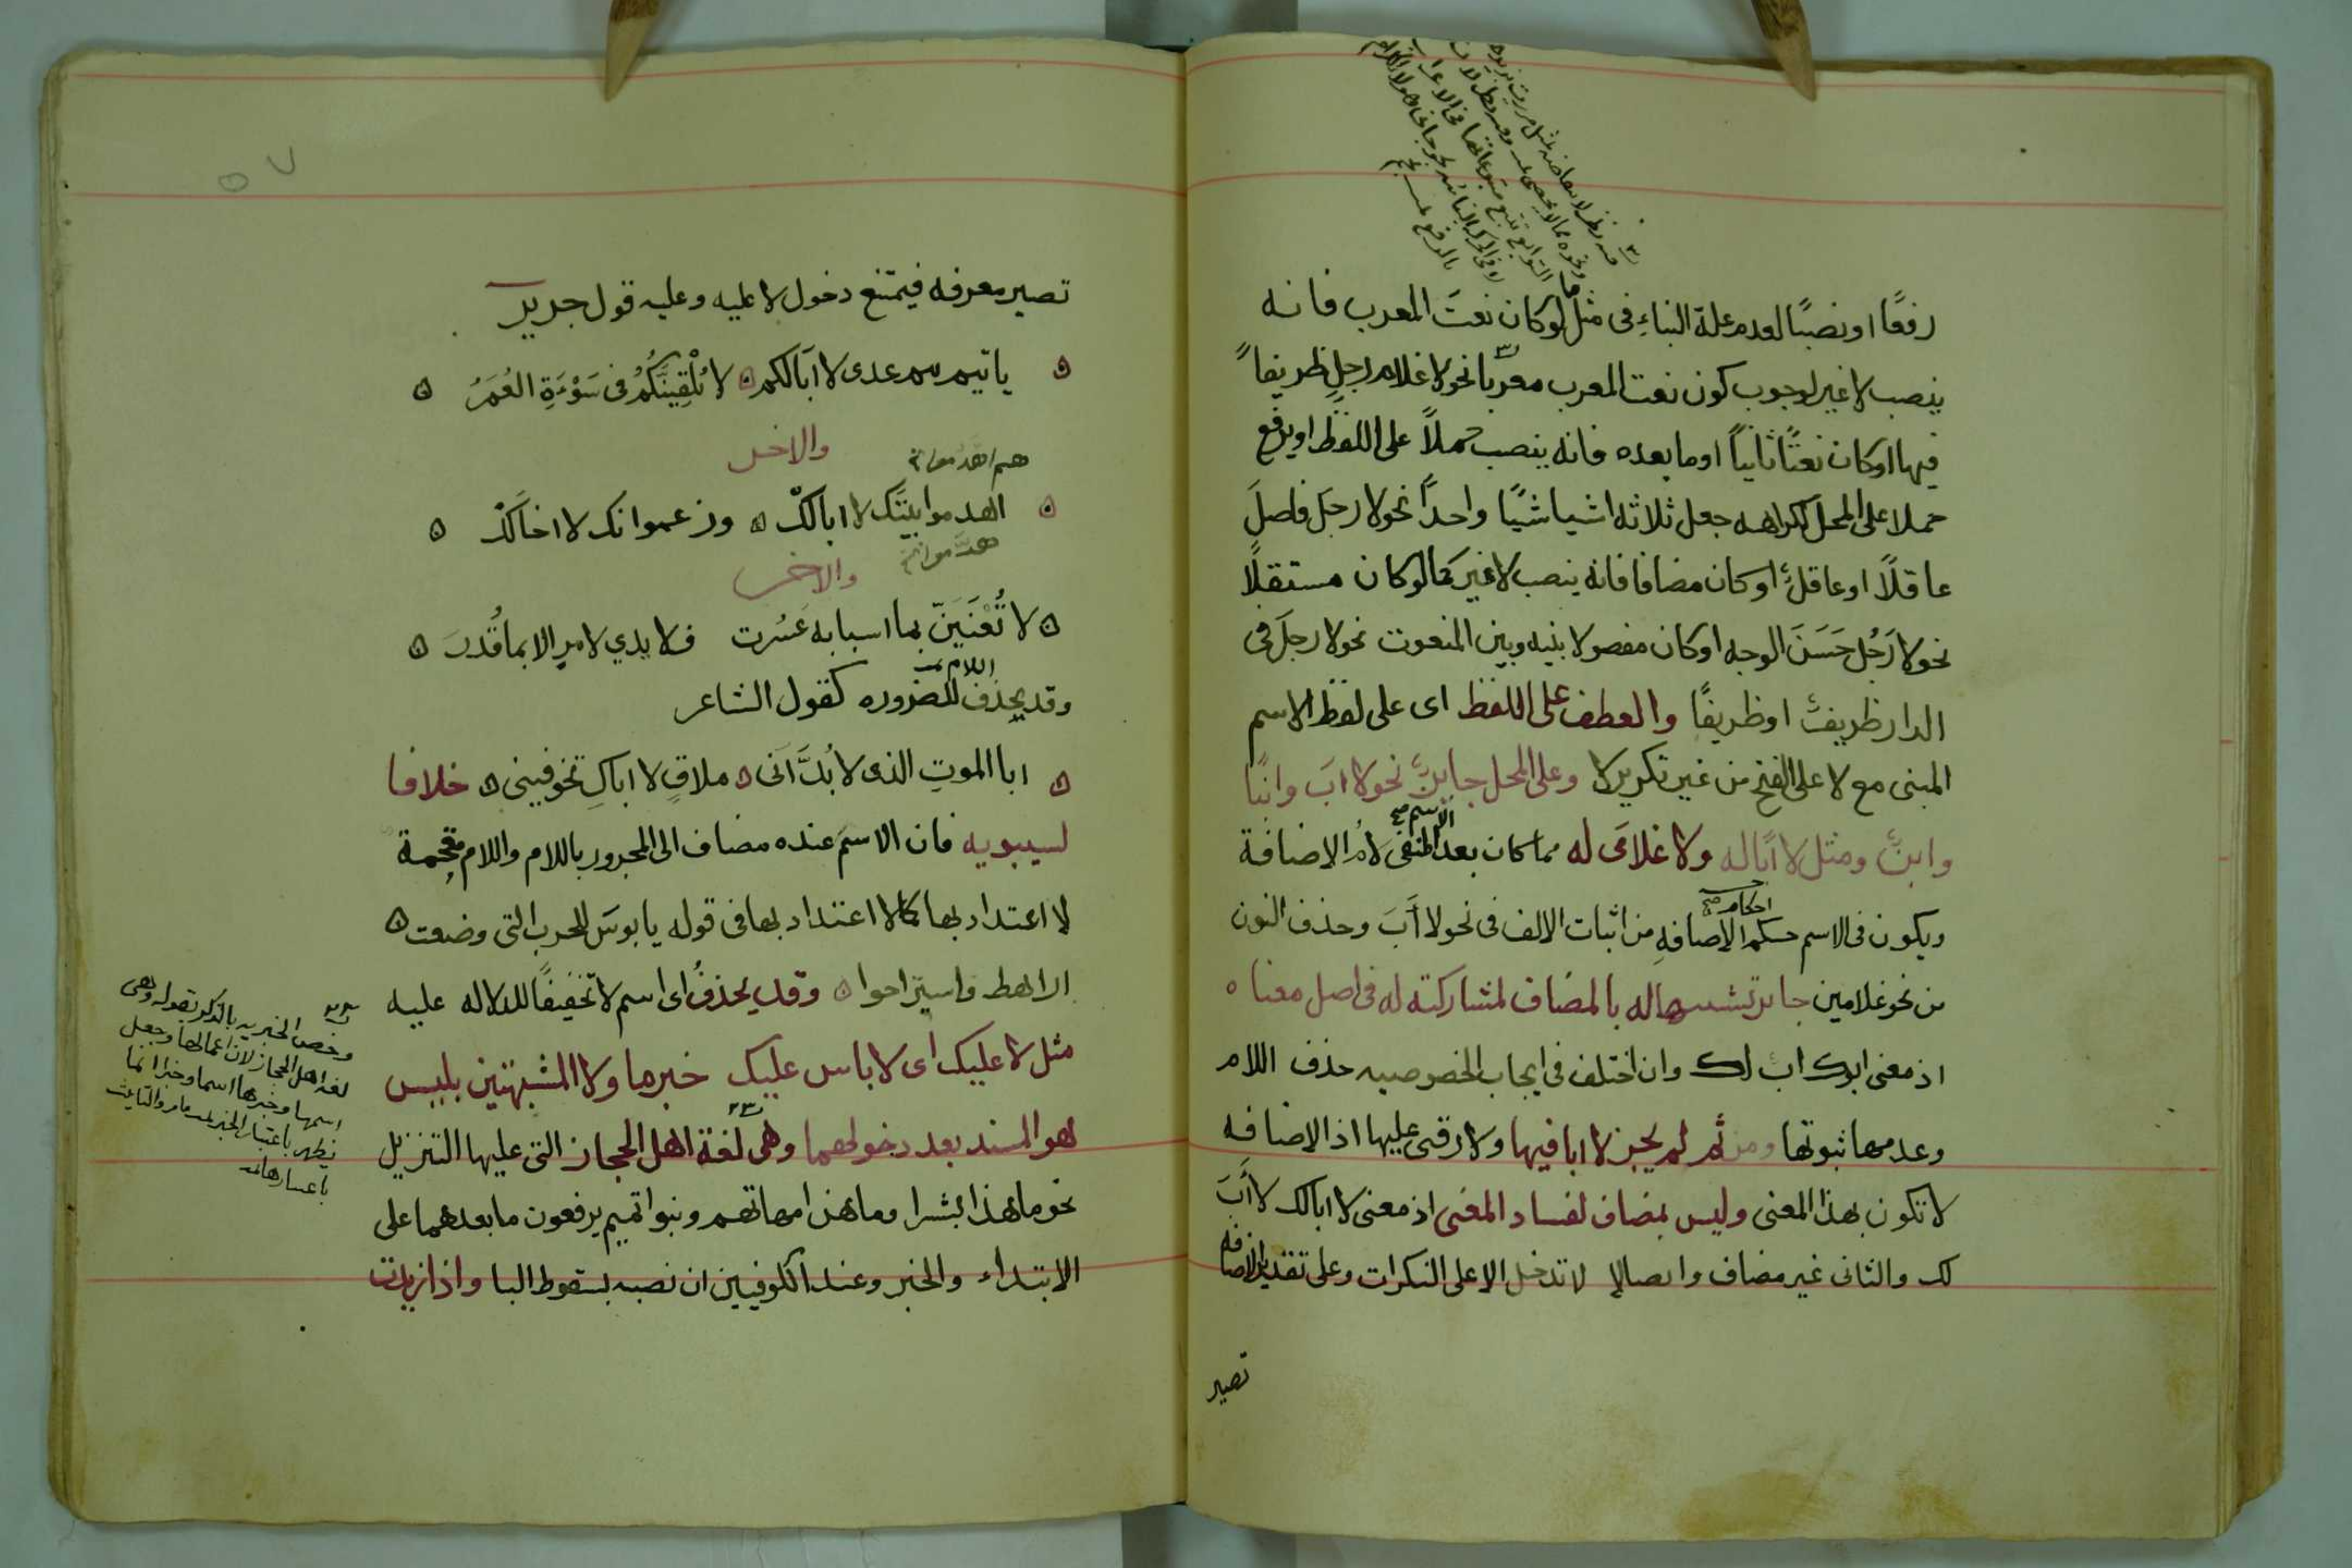 رفعًا او نصبًا لعدم علة البناءِ فى مثل ما لو كان نعتَ المعرب فانه
ينصب لا غير لوجوب كون نعت المعرب معربًا نحو لا غلام رجلٍ ظريفاً
فيها او كان نعتًا ثانياً او ما بعده فانه ينصب حملاً على اللفظ او يرفع
حملا على المحل لكراهه جعل ثلاثه اشيا شيًا واحداً نحو لا رجلَ فاضلَ
عاقلًا او عاقلٌ او كان مضافا فانه ينصب لا غير كما لو كان مستقبلًا
نحو لا رَجُل حَسَنَ الوجه او كان مفصولا بنيه وبين المنعوت نحو لا رجلَ فى
الدار ظريفٌ او ظريفًا والعطف على اللفظ اى على لفظ الاسم
المبنى مع لا على الفتح من غير تكرير لا وعلى المحل جايزٌ نحو لا ابَ وابنًا
وابنٌ ومثل لا اباله ولا غلامَى له مما كان بعد الاسم المنفى لامُ الاضافة
ويكون فى الاسم حكم احكام الاضافهِ من اثبات الالف فى نحو لا أبَ وحذف النون
من نحو غلامين جايز تشبيها له بالمضاف لمشاركته له فى اصل معناه
اذ معنى ابوك ابٌ لك وان اختلف فى ايجاب الخصوصيه حذف اللام
وعدمها ثبوتها ومن ثم لم يجز لا ابا فيها ولا رقبى عليها اذ الاضافه
لا تكون بهذا المعنى وليس بمضاف لفساد المعنى اذ معنى لا ابالك لا أبَ
لك والثانى غير مضاف وايضا لا لا تدخل الا على النكرات وعلى تقدير الاضافه
تصير
تصير معرفه فيمتنع دخول لا عليه وعليه قول جرير
يا تيم تيم عدى لا ابَالكم لا يُلْقِيَنَّكُمُ فى سَوْءَةٍ العُمَرُ
والاخر
اهدموا بيتَك لا ابالكْ وزعموا انك لا اخَالَكْ
والاخر
لا تُعْنَيَنّ بما اسبابه عَسُرت فلا يدي لامرٍ الا بما قُدرَ
وقد يحذف اللام للضروره كقول الشاعر
ابا الموتِ الذى لا بُدَّ اَنى ملاقٍ لا اباكِ تخوفينى خلافا
لسيبويه فان الاسمَ عنده مضاف الى المجرور باللام واللام مقحمة
لا اعتداد بها كما لا اعتداد بها فى قوله يا بوسَ للحرب التى وضعت
اراهط فاستراحوا وقد يحذفُ اى اسم لا تخفيفًا للدلاله عليه
مثل لا عليك اى لا باس عليك خبر ما ولا المشبهتين بليس
هو المسند بعد دخولهما وهى لغة اهل الحجاز التى عليها التنزيل
نحو ما هذا بشرا وما هن امهاتهم وبنوا تميم يرفعون ما بعدهما على
الابتداء والخبر وعند الكوفيين ان نصبه بسقوط البا واذا زيدت
وخص الخبريه بالذكر بقوله وهى
لغه اهل الحجاز لان اعمالها وجعل
اسمها وخبرها اسما وخبرا انما
يظهر باعتبار الخبر